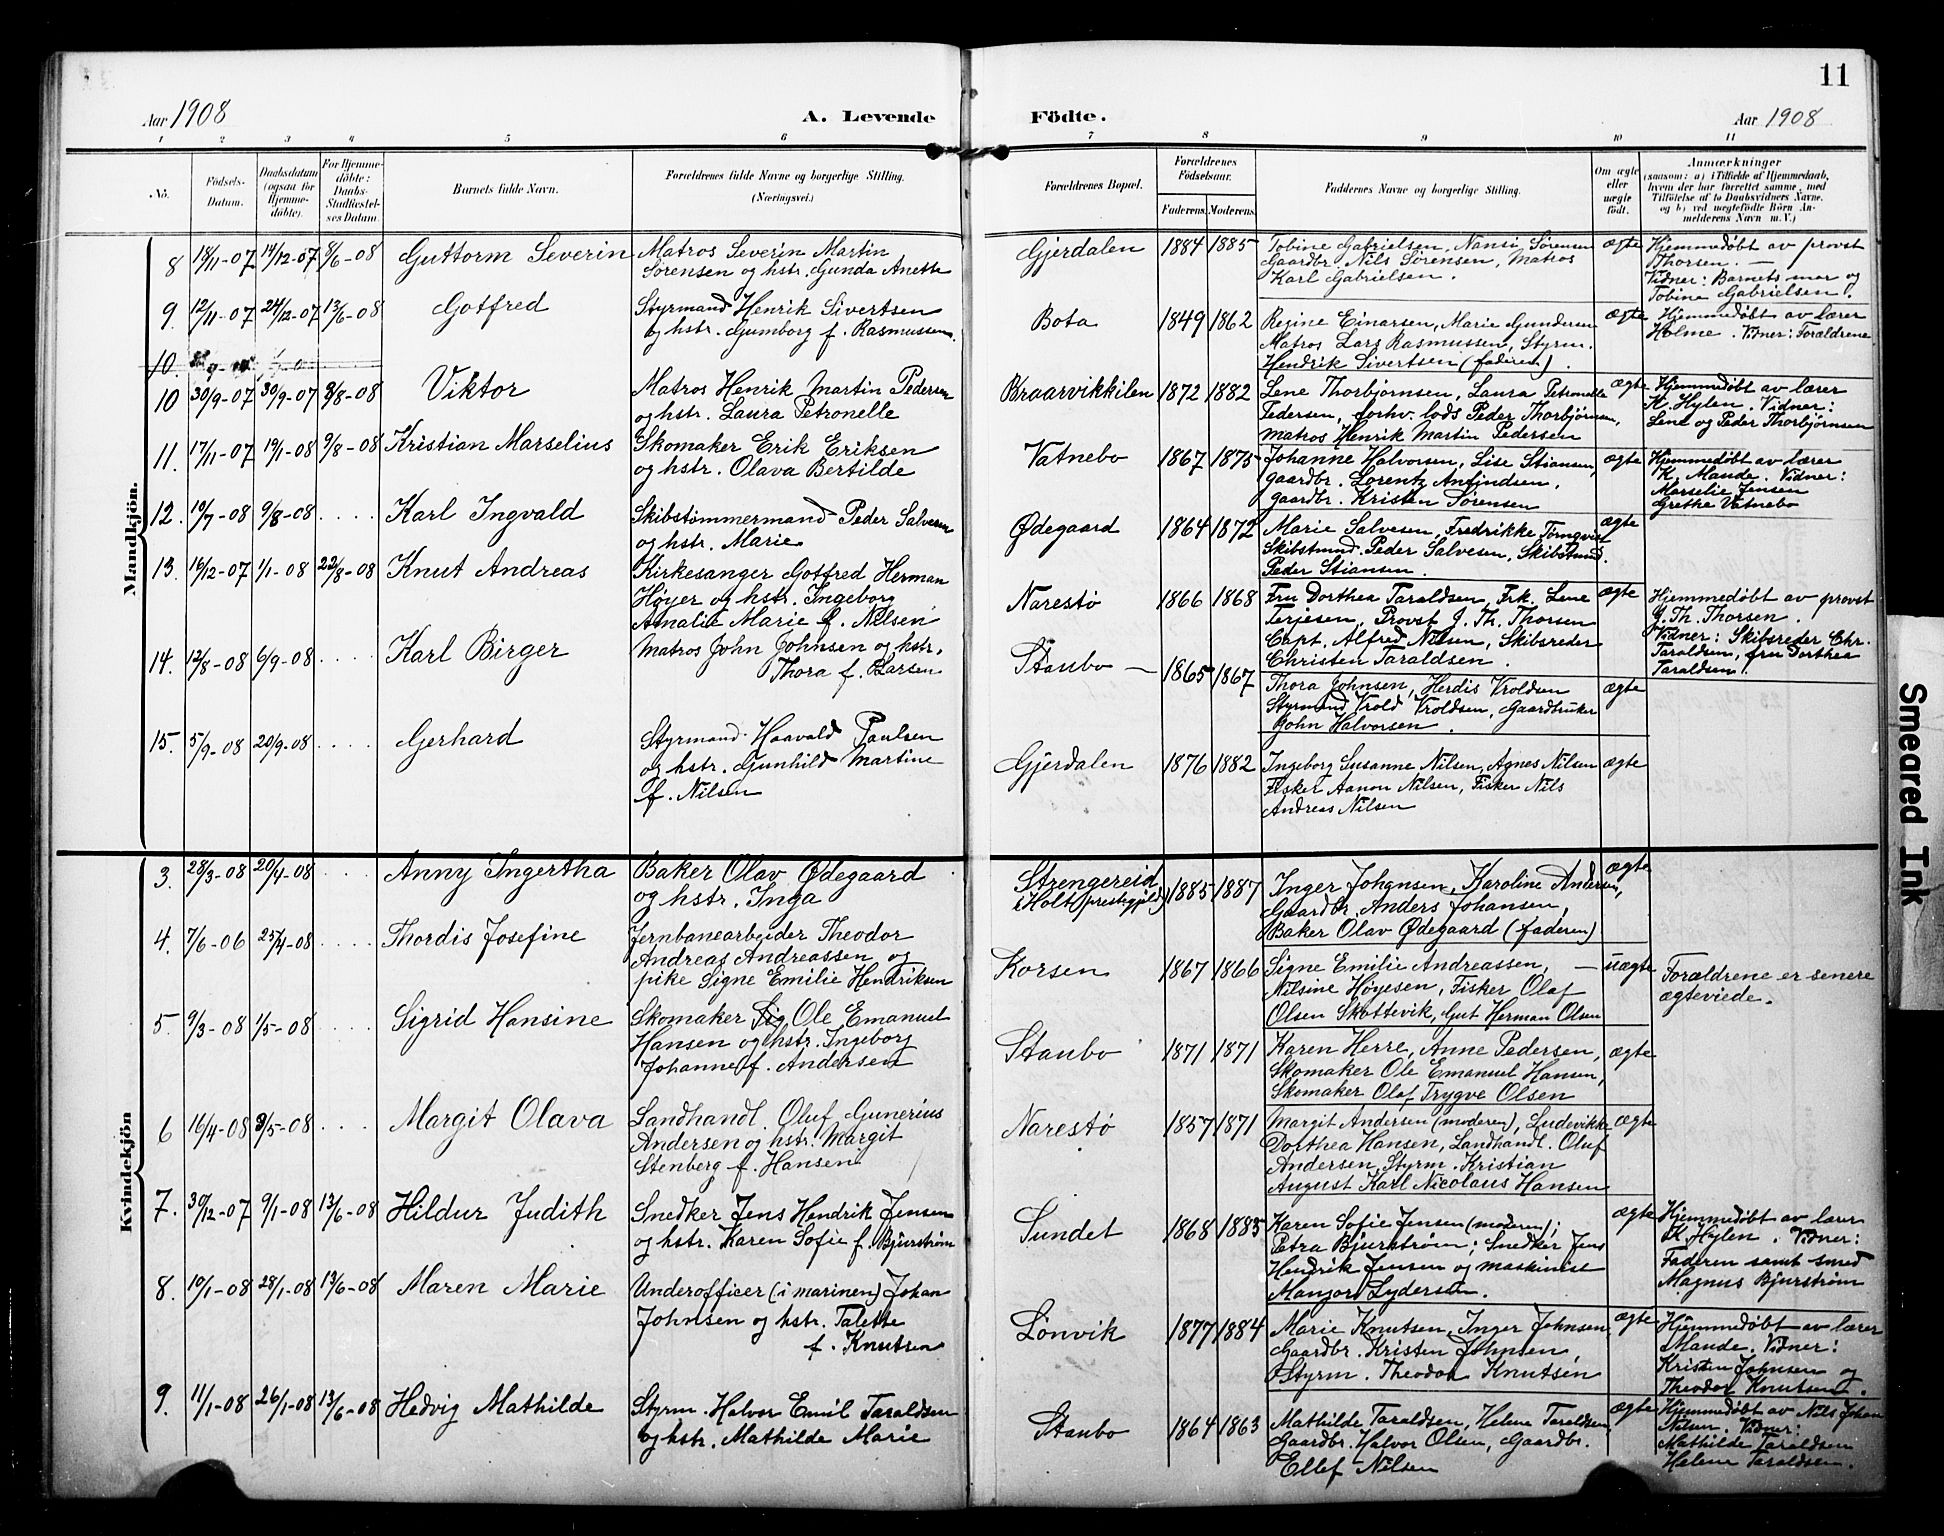 11
Aar 1908
A. Levende Födte.
Aar 1908
1 2 3 4 5 6 7 8 9 10 11
No.
Födsels-Datum.
Daabsdatum (ogsaa for Hjemme-döbte).
For Hjemme-döbte: Daabs-Stadfæstel-ses Datum.
Barnets fulde Navn.
Forældrenes fulde Navne og borgerlige Stilling. (Næringsvei.)
Forældrenes Bopæl.
Forældrenes Födselsaar.
Faderens. Moderens.
Faddernes Navne og borgerlige Stilling.
Om ægte eller uægte födt.
Anmærkninger
(saasom: a) i Tilfælde af Hjemmedaab, hvem der har forrettet samme, med Tilföielse af to Daabsvidners Navne, og b) ved uægtefödte Börn An-melderens Navn m. V.)
Mandkjön.
8 18/11-07 14/12-07 8/6-08 Guttorm Severin
Matros Severin Martin
Sørensen og hstr. Gunda Anette
Gjerdalen 1884 1885
Tobine Gabrielsen, Nansi Sørensen
Gaardbr. Nils Sørensen, Matros
Karl Gabrielsen.
ægte
Hjemmedøbt av provst
Thorsen. —
Vidner: Barnets mor og
Tobine Gabrielsen.
9. 12/11-07 24/12-07 13/6-08 Gotfred
Styrmand Henrik Sivertsen
og hstr. Gumborg f. Rasmussen.
Bota 1849 1862
Regine Einarsen, Marie Gundersen
Matros Lars Rasmussen, Styrm.
Hendrik Sivertsen (faderen).
ægte
Hjemmedøbt av lærer
Holme. Vidner: Forældrene
10.
10 30/9-07 30/9-07 3/8-08 Viktor
Matros Henrik Martin Pedersen
og hstr. Laura Petronelle
Braarvikkilen 1872 1882
Lene Thorbjørnsen, Laura Petronelle
Pedersen, forhv. lods Peder Thorbjørnsen,
Matros Henrik Martin Pedersen
ægte
Hjemmedøbt av lærer
K. Hylen. Vidner:
Lene og Peder Thorbjørnsen
11. 17/11-07 19/1-08 9/8-08 Kristian Marselius
Skomaker Erik Eriksen
og hstr. Olava Bertilde
Vatnebo 1867 1875
Johanne Halvorsen, Lise Stiansen,
gaardbr. Lorentz Anfindsen,
gaardbr. Kristen Sørensen
ægte
Hjemmedøbt av lærer
K. Mande. Vidner:
Marselie Jensen
Grethe Vatnebo
12. 10/7-08 9/8-08 .... Karl Ingvald
Skibstømmermand Peder Salvesen
og hstr. Marie
Ødegaard 1864 1872
Marie Salvesen, Fredrikke Tørnqvist
Skibstmd. Peder Salvesen, Skibstmd.
Peder Stiansen.
ægte
13. 16/12-07 1/1-08 22/8-08 Knut Andreas
Kirkesanger Gotfred Herman
Høyer og hstr. Ingeborg
Amalie Marie f. Nilsen
Narestø 1866 1868
Fru Dorthea Taraldsen, Frk. Lene
Terjesen, Provst J. Th. Thorsen
Capt. Alfred Nilsen, Skibsreder
Christen Taraldsen.
ægte
Hjemmedøbt av provst
J. Th. Thorsen.
Vidner: Skibsreder Chr.
Taraldsen, fru Dorthea
Taraldsen.
14. 12/8-08 6/9-08 .... Karl Birger
Matros John Johnsen og hstr.
Thora f. Larsen
Staubo — 1865 1867
Thora Johnsen, Herdis Vroldsen
Styrmand Vrold Vroldsen, Gaardbruker
John Halvorsen.
ægte
15. 5/9-08 20/9-08 .... Gerhard
Styrmand Haavald Paulsen
og hstr. Gunhild Martine
f. Nilsen
Gjerdalen 1876 1882
Ingeborg Susanne Nilsen, Agnes Nilsen
Fisker Aanon Nilsen, Fisker Nils
Andreas Nilsen
ægte
Kvindekjön
3. 28/3-08 20/4-08 .... Anny Ingertha
Baker Olav Ødegaard
og hstr. Inga
Strengereid
i Holt prestegjeld 1885 1887
Inger Johansen, Karoline Andersen,
Gaardbr. Anders Johansen,
Baker Olav Ødegaard (faderen)
ægte
4. 7/6-06 25/4-08 .... Thordis Josefine
Jernbanearbeider Theodor
Andreas Andreassen og
pike Signe Emilie Hendriksen
Korsen 1867 1866
Signe Emilie Andreassen, —
Nilsine Høyesen, Fisker Olaf
Olsen Skottevik, Gut Herman Olsen
uægte
Forældrene er senere
ægteviede.
5. 9/3-08 1/5-08 .... Sigrid Hansine
Skomaker Sig Ole Emanuel
Hansen og hstr. Ingeborg
Johanne f. Andersen
Staubo 1871 1871
Karen Herre, Anne Pedersen,
Skomaker Ole Emanuel Hansen,
Skomaker Olaf Trygve Olsen
ægte
6 16/4-08 3/5-08 .... Margit Olava
Landhandl. Oluf Gunerius
Andersen og hstr. Margit
Stenberg f. Hansen
Narestø 1857 1871
Margit Andersen (moderen), Ludevikke
Dorthea Hansen, Landhandl. Oluf
Andersen, Styrm. Kristian
August Karl Nicolaus Hansen
ægte
7. 30/12-07 9/1-08 13/6-08 Hildur Judith
Snedker Jens Hendrik Jensen
og hstr. Karen Sofie f. Bjurstrøm
Sundet 1868 1885
Karen Sofie Jensen (moderen);
Petra Bjurstrøm; Snedker Jens
Hendrik Jensen og maskinist
Manjor Lydersen.
ægte
Hjemmedøbt av lærer
K. Hylen. Vidner:
Faderen samt smed
Magnus Bjurstrøm
8. 10/1-08 28/1-08 13/6-08 Maren Marie
Underofficer (i marinen) Johan
Johnsen og hstr. Talette
f. Knutsen
Lønvik 1877 1884
Marie Knutsen, Inger Johnsen
Gaardbr. Kristen Johnsen,
Styrm. Theodor Knutsen
ægte
Hjemmedøbt av lærer
Mande. Vidner:
Kristen Johnsen og
Theodor Knutsen.
9. 11/1-08 26/1-08 13/6-08 Hedvig Mathilde
Styrm. Halvor Emil Taraldsen
og hstr. Mathilde Marie
Staubo 1864 1863
Mathilde Taraldsen, Helene Taraldsen,
Gaardbr. Halvor Olsen, Gaardbr.
Ellef Nilsen
ægte
Hjemmedøbt av Nils Johan
Nilsen. Vidner:
Mathilde Taraldsen
Helene Taraldsen.
Smeared Ink